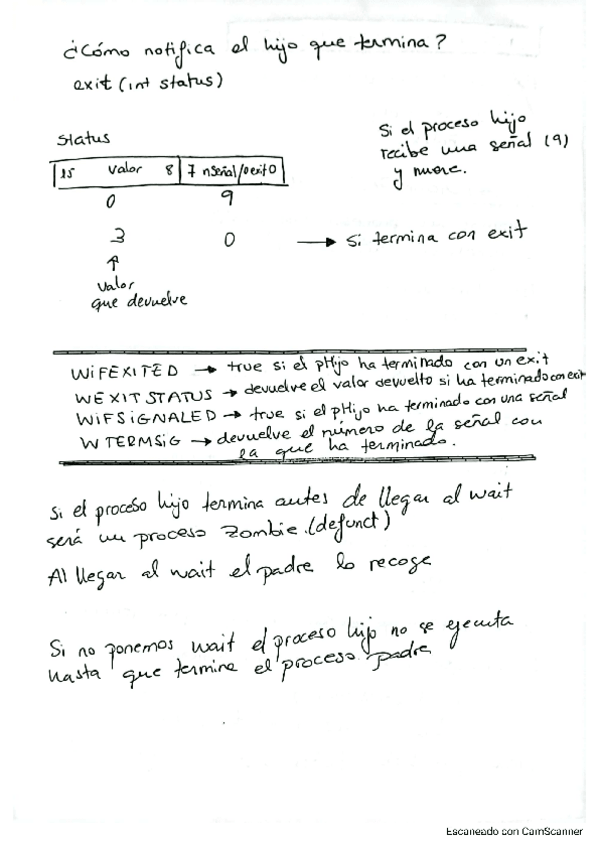 ¿Cómo notifica el hijo que termina?
exit (int status)
Status
Si el proceso hijo
recibe una señal (9)
y muere.
15 Valor 8 7 nseñal/0exit 0
0 9
3 0 → si termina con exit
↑
Valor
que devuelve
WIFEXITED → true si el pHijo ha terminado con un exit
WEXITSTATUS → devuelve el valor devuelto si ha terminado con exit
WIFSIGNALED → true si el pHijo ha terminado con una señal
WTERMSIG → devuelve el número de la señal con
la que ha terminado.
Si el proceso hijo termina antes de llegar al wait
será un proceso Zombie. (defunct)
Al llegar al wait el padre lo recoge
Si no ponemos wait el proceso hijo no se ejecuta
hasta que termine el proceso padre
Escaneado con CamScanner